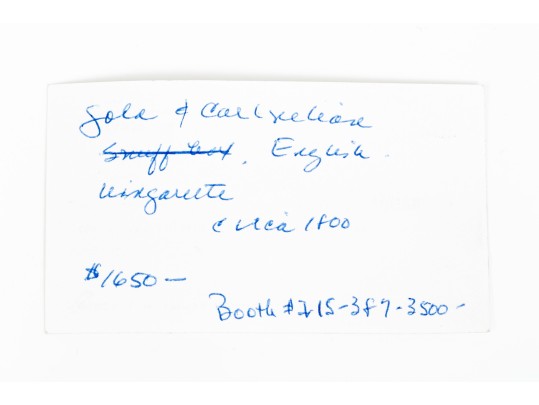 Gold & Carlnelian
Snuff box, English
Vinigarette
circa 1800
$1650 –
Booth # 215-387-3500 -